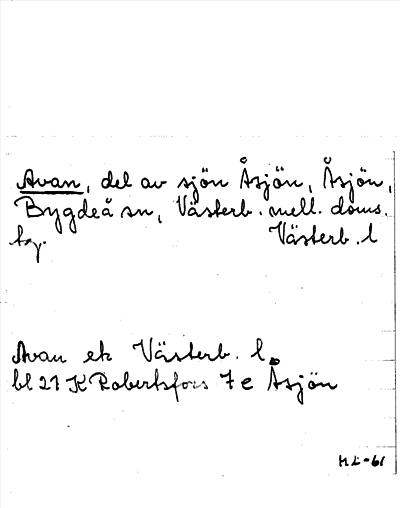 Avan, del av sjön Åsjön, Åsjön,
Bygdeå sn, Västerb. mell. doms.
tg. Västerb. l
Avan ek Västerb. l.
bl 21 K Robertsfors 7 e Åsjön
HL-61